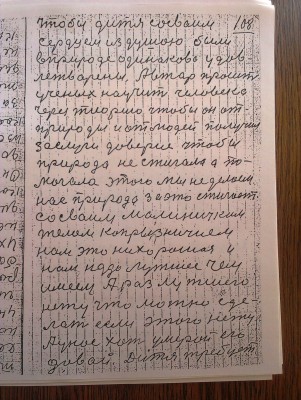 чтобы дитя со своим 108
сердцем из душою был
в природе одинаково удов
летворены. Автор просит
ученых научит человека
через теорию чтобы он от
природы и от людей получил
заслуги доверие чтобы
природа не стигала а по-
могала этого мы не делаем
нас природа за это стигает
со своим маленичким
телом
нам это нихорошая и
нам надо лутшее чем
имеем А раз лутшего
нету чтоможно сде-
лать если этого нету
А у нас хот умирой его
давай. Дитя требует